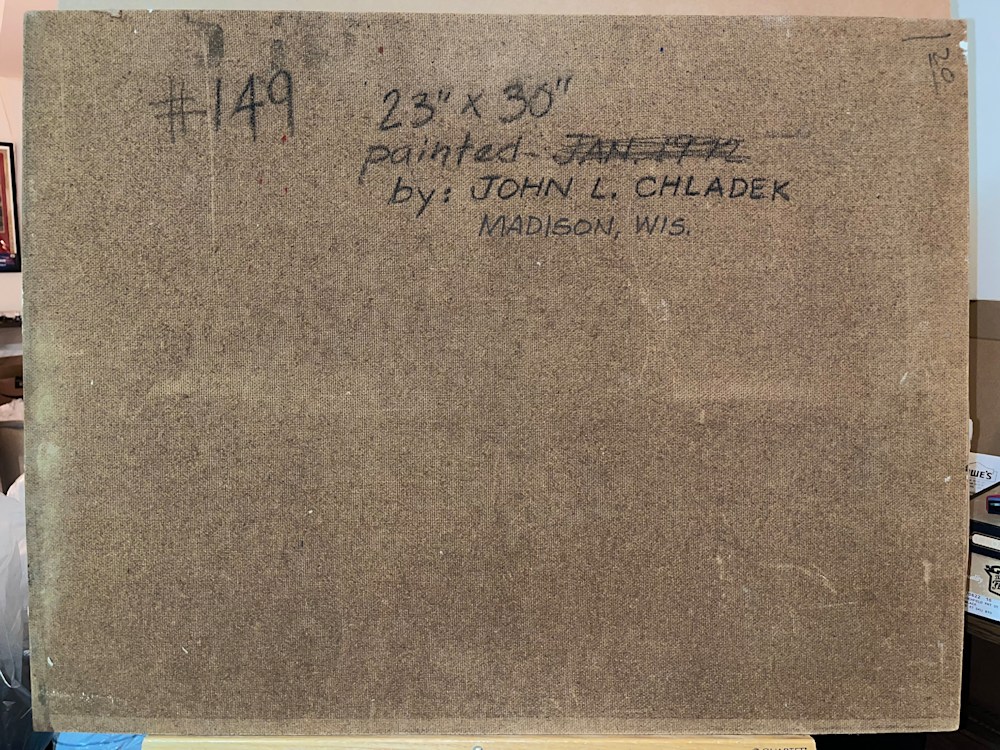 #149
23" x 30"
painted - JAN. 1972
by: JOHN L. CHLADEK
MADISON, WIS.
120